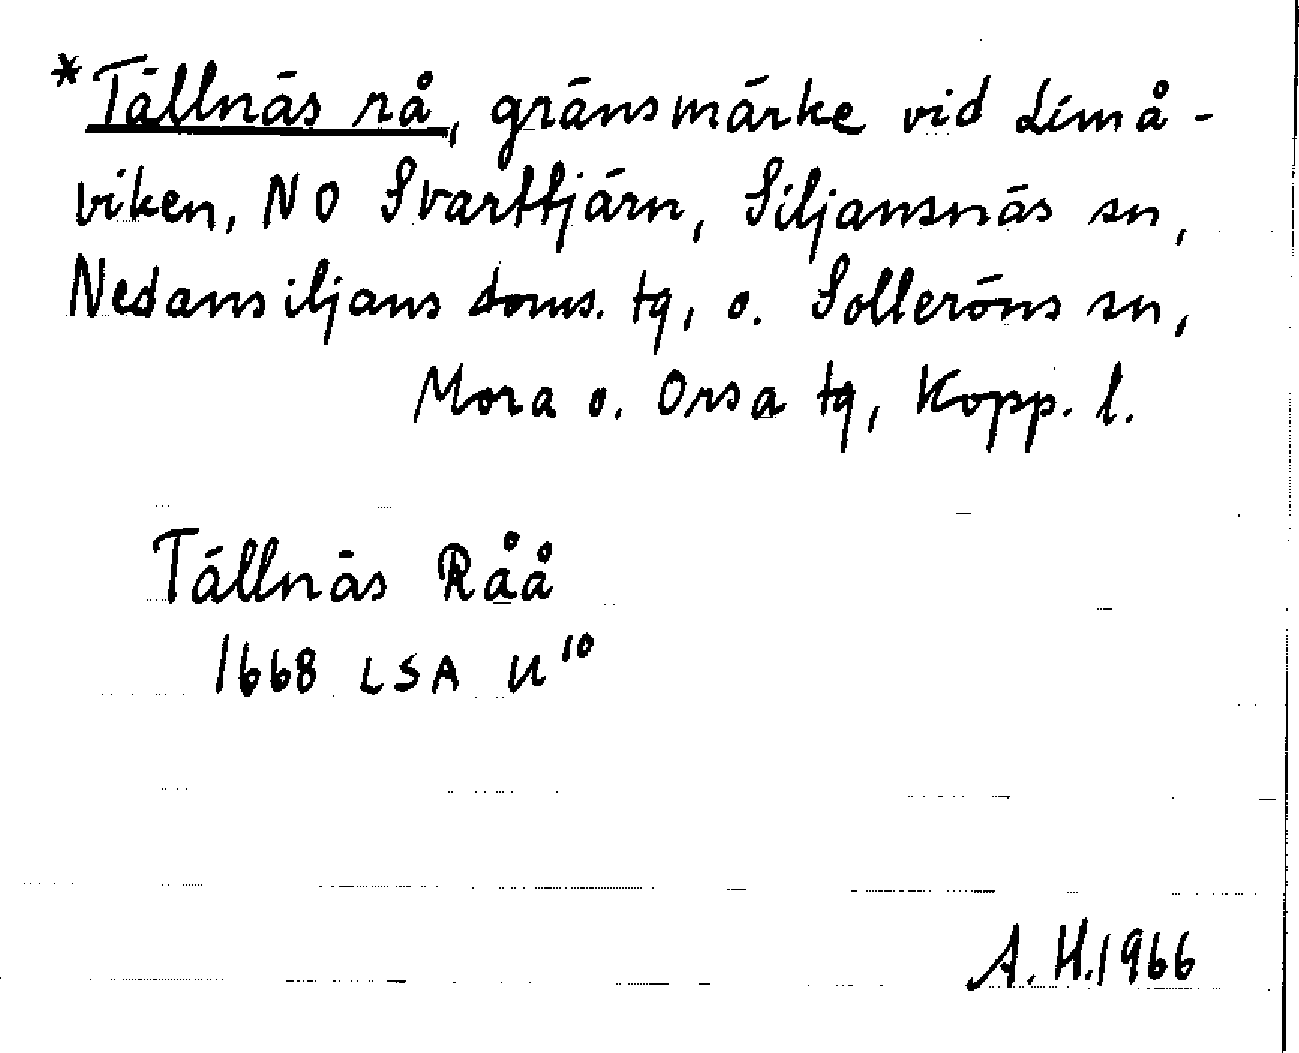 *Tällnäs rå, gränsmärke vid Limå-
viken, NO Svarttjärn, Siljansnäs sn,
Nedansiljans doms. tg, o. Solleröns sn,
Mora o. Orsa tg, Kopp. l.
Tällnäs Råå
1668 LSA U¹⁰
A.H. 1966